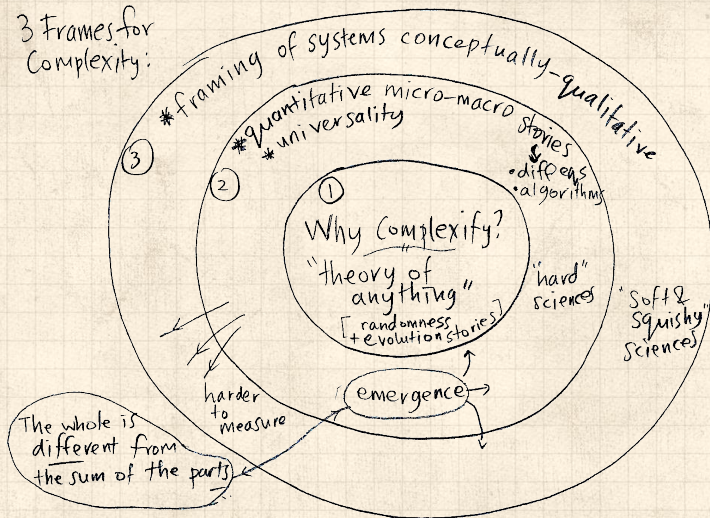 3 Frames for
Complexity:
③
*framing of systems conceptually-qualitative
②
*quantitative micro-macro stories
*universality
•diff eqs
•algorithms
①
Why Complexify?
"theory of
anything"
[randomness
+ evolution stories]
"hard"
sciences
"Soft &
Squishy"
sciences
harder
to
measure
emergence
The whole is
different from
the sum of the parts